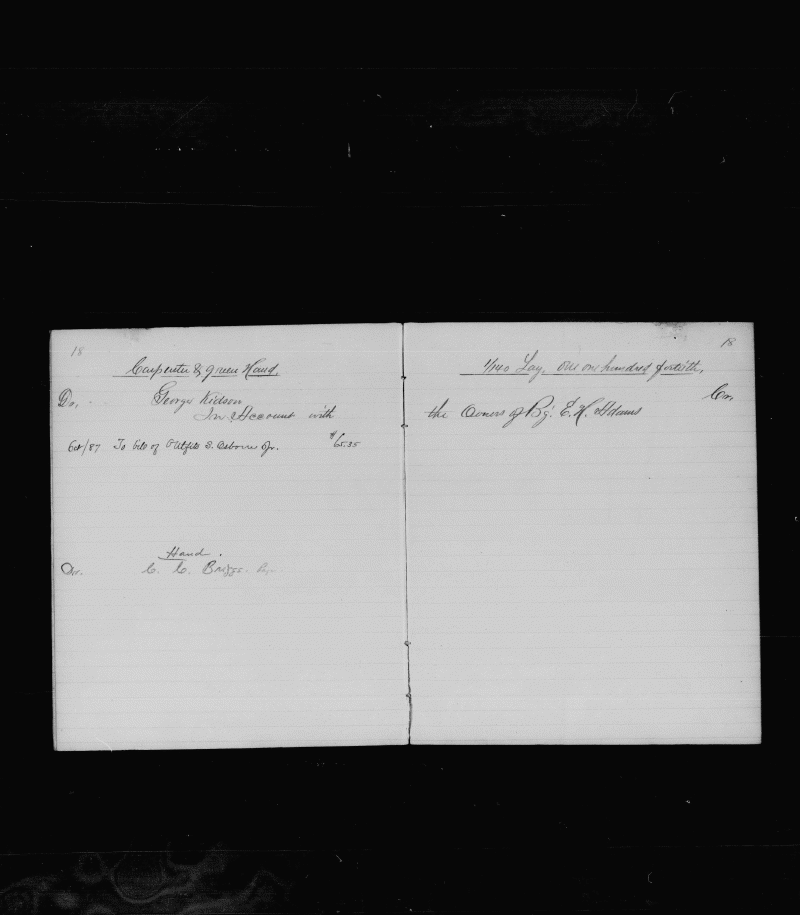 18
Carpenter & Green Hand.
Dr. George Kidson
In Account with
Oct/87 To bill of Outfits S. Osborn Jr. $65.35
Hand.
Dr. C. C. Briggs.
18
1/140 Lay, one one hundred fortieth,
Cr.
the Owners of Bg. E. H. Adams